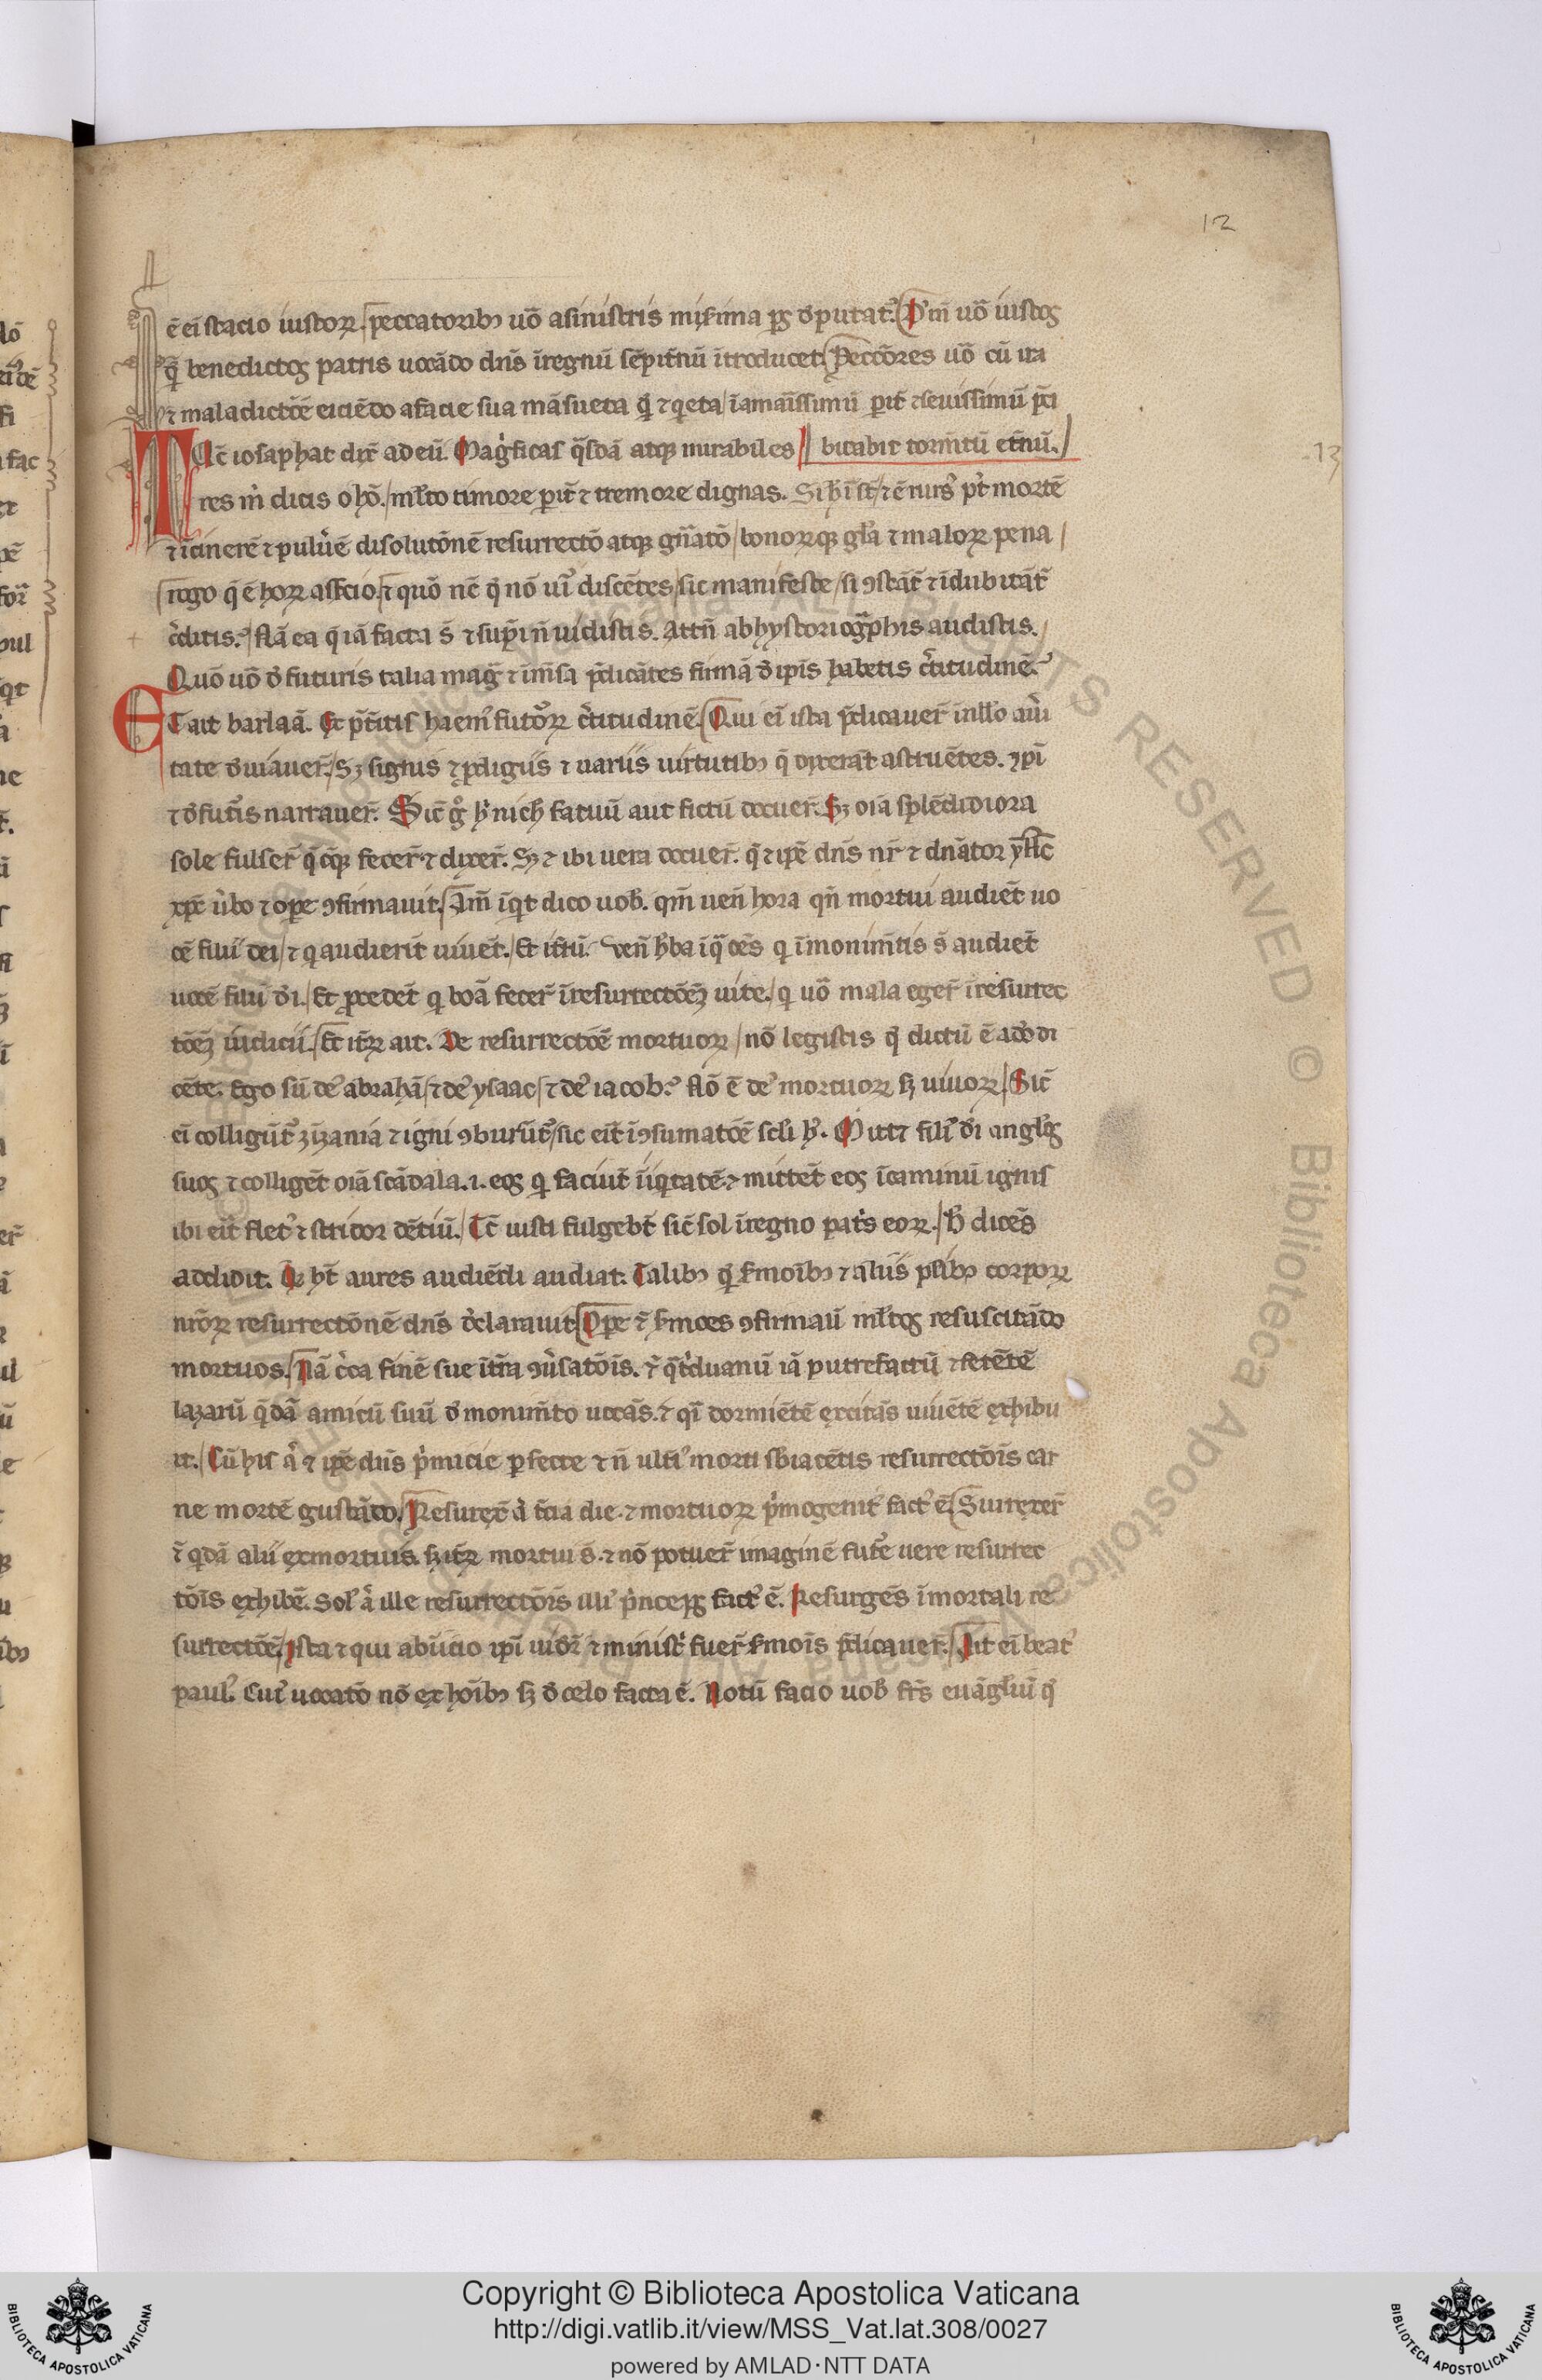 12
ē eī stacio iustoꝝ. peccatoribꝫ uō a sinistris mixima ꝑs dputat᷑. Dn̄i uō iustos
q̄ benedictos patris uocādo dn̄s ī regnū sēpit̄nū ītroducet. Peccōres uō cū ira
⁊ maladictōe eiciēdo a facie sua māsueta ⁊ q̇eta / ī amarissimū
TUc̄ iosaphat dix̄ ad eū. Magͥficas q̄sdā atqꝫ mirabiles // bitabit torm̄tū et̄nū.
13
res m̄ dicis o hō. / ml̄to timore ꝑit̄ ⁊ tremore dignas. Si h̄ īst / ⁊ ē rursꝰ pꝰt mortē
⁊ ī cinerē ⁊ puluͤē disolutōnē resurrectō atqꝫ gn̄atō / bonoꝝqꝫ gl̄a ⁊ maloꝝ pena /
rogo q̄ ē hoꝝ assc̄io. / ⁊ quō nc̄ q̄ nō uīꝰ discētes / sic manifeste / si ꝯstāt̄ ⁊ īdubitāt̄
cͬditis. / Nā ea q̄ iā facta s̄ ⁊ suꝑ uidistis. Attn̄ ab hystoriogͣphis audistis. /
Quō uō d̄ futuris talia maḡ ⁊ īm̄sa p̄dicātes firmā d̄ ip̄is habetis cͬtitudinē.
Et ait barlaā. Et p̄t̄itis haemꝰ futōꝝ cͬtitudinē. Qui eī ista p̄dicauer̄ ī nll̄o a uͬi
tate d̄uiauer̄. / Sꝫ signis ⁊ ꝓdigiis ⁊ uariis uirtutibꝫ q̄ dixerāt astruētes. ⁊ ip̄i
⁊ d̄ fut̄is narrauer̄. Sic̄ gͦ h̄ nich̄ fatuū aut fictū docuer̄. Sꝫ oīa splēdidiora
sole fulser̄ q̄cūqꝫ fecer̄ ⁊ dixer̄. Sꝫ ⁊ ibi uera docuer̄. q̄ ⁊ ip̄e dn̄s nr̄ ⁊ dn̄ator yhc̄
xp̄c uͬbo ⁊ oꝑe ꝯfirmauit. Am̄ īq̇t dico uob̄. qm̄ uen̄ hora qn̄ mortui audiēt uo
cē filii dei / ⁊ q̇ audierīt uiuēt. / Et it̄ū. Ven̄ hͦra ī q̄ oēs q̇ ī monim̄tis s̄ audiēt
uocē filii d̄i. / Et ꝓcedēt q̇ boā fecer̄ ī resurrectōēꝫ uite. / q̇ uō mala eger̄ ī resurrec
tōēꝫ iudicii. Et it̄ꝝ ait. De resurrectōē mortuoꝝ / nō legistis q̄ dictū ē a dō di
cēte. Ego sū deꝰ abrahā / ⁊ deꝰ ysaac / ⁊ deꝰ iacob. Nō ē deꝰ mortuoꝝ sꝫ uiuoꝝ. / Sic̄
eī colligūt᷑ zizania ⁊ igni ꝯburūt᷑ / sic eīt ī ꝯsumatōē scl̄i hꝰ. Mittꝫ filiꝰ d̄i angl̄os
suos ⁊ colligēt oīa scādala .i. eos q̇ faciūt īiq̇tatē. ⁊ mittēt eos ī caminū ignis
ibi eīt fletꝰ ⁊ stridor dētiū. / Tc̄ iusti fulgebt̄ sic̄ sol ī regno patͥs eoꝝ. / H̄ dicēs
addidit. Q̇ ht̄ aures audiēdi audiat. Talibꝫ q̄ sͬmoībꝫ ⁊ aliis pl̄ibꝫ corpoꝝ
nr̄oꝝ resurrectōnē dn̄s dͨclarauit. Oꝑe ⁊ sͬmoēs ꝯfirmaū ml̄tos resuscitādo
mortuos. Nā cͥca finē sue īt̄ra ꝯuͬsatōīs. ⁊ q̄tͥduanū iā putrefactū ⁊ fetētē
lazarū q̄dā amicū suū d̄ monim̄to uocās. ⁊ qͣī dormiētē excitās uiuētē exhibu
it. / Cū his ā ⁊ ip̄e dn̄s pͥmicie ꝑfecte ⁊ n̄ ulͭiꝰ morti sb̄iacētis resurrectōīs car
ne mortē gustādo. Resurex̄ ā t̄cia die. ⁊ mortuoꝝ pͥmogenitꝰ factꝰ ē. Surrexer̄
⁊ q̇dā alii ex mortuis. sꝫ it̄ꝝ mortui s̄. ⁊ nō potuer̄ imaginē fut̄e uere resurrec
tōīs exhibē. Solꝰ ā ille resurrectōīs illiꝰ pͥnceps factꝰ ē. Resurgēs ī mortali re
surrectōē. / Ista ⁊ qui ab īicio ip̄i uidͬī ⁊ ministͥ fuer̄ sͬmoīs p̄dicauer̄. / Ait eī beatꝰ
paulꝰ. Cuiꝰ uocatō nō ex hoībꝫ sꝫ d̄ celo facta ē. Notū facio uob̄ fr̄s euāgl̄iū q̄
Copyright © Biblioteca Apostolica Vaticana
http://digi.vatlib.it/view/MSS_Vat.lat.308/0027
powered by AMLAD·NTT DATA
BIBLIOTECA APOSTOLICA VATICANA
BIBLIOTECA APOSTOLICA VATICANA